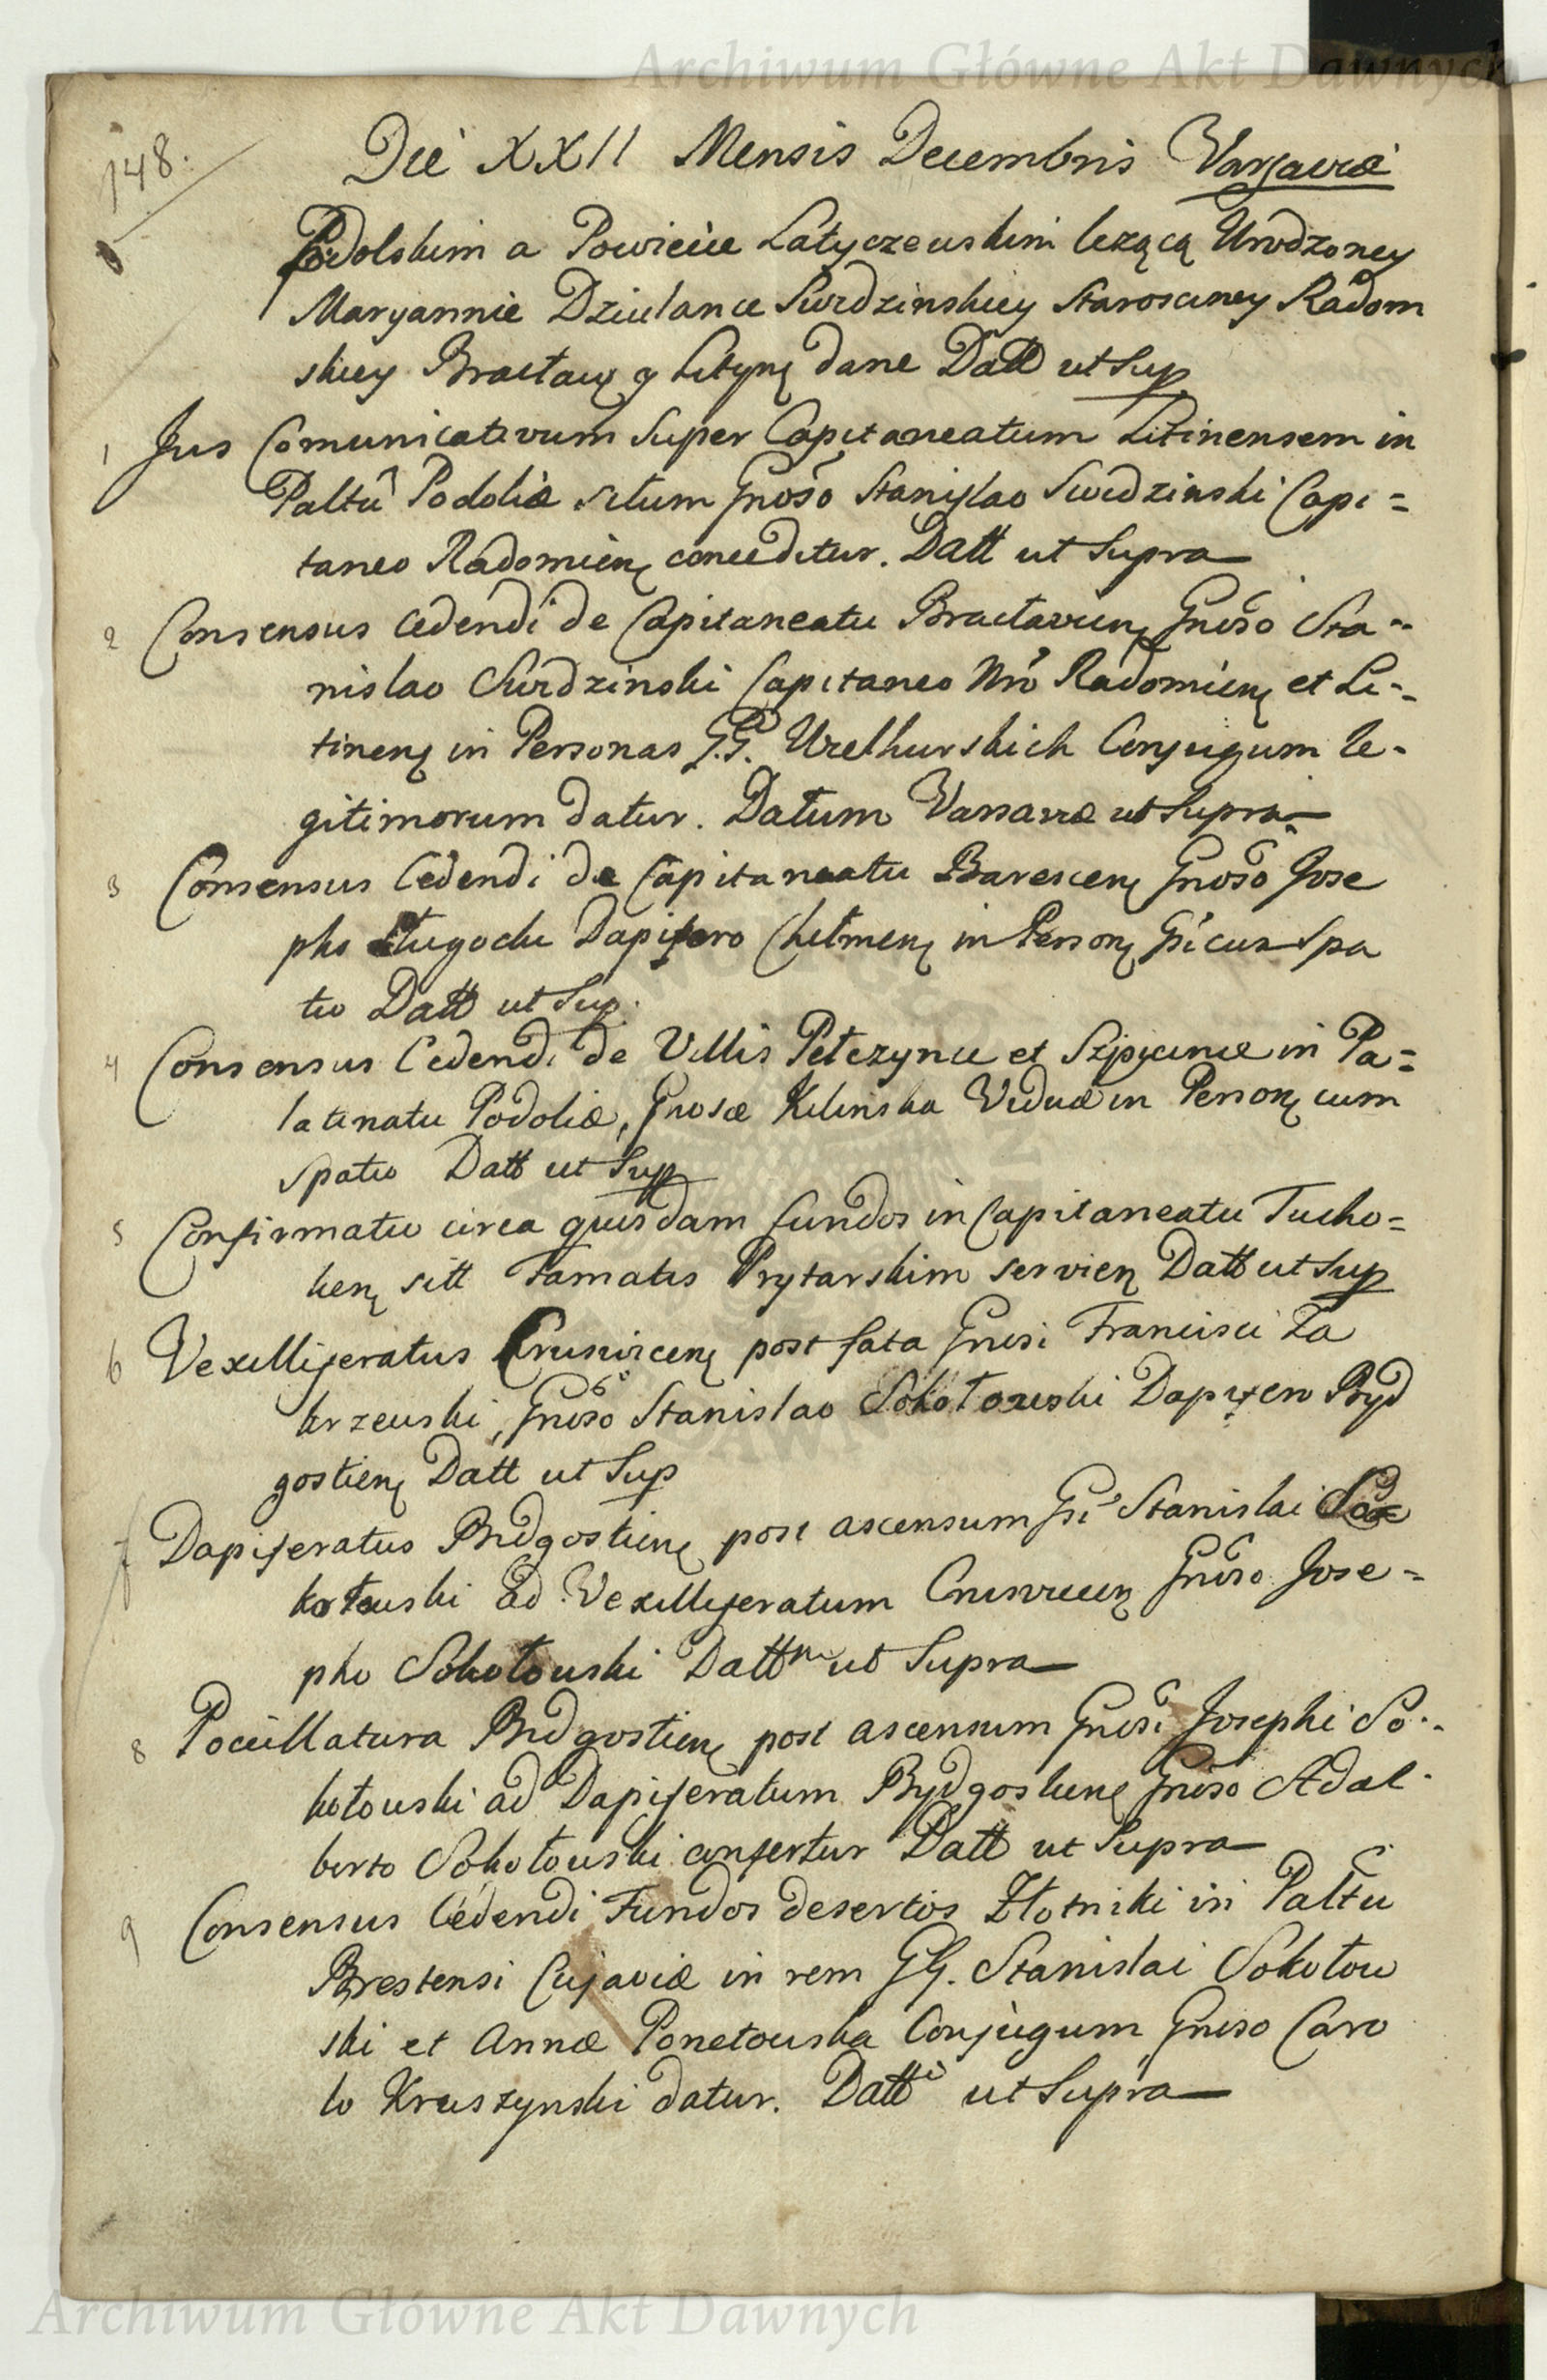 Archiwum Główne Akt Dawnych
148.
Die XXII Mensis Decembris Varsaviæ
Podolskim a Powiecie Latyczewskim lezącą Urodzoney
Maryannie Dziulance Swidzinskiey Starosciney Radom
skiey Bracław y Lityn dane Datt ut Sup
1 Jus Comunicativum Super Capitaneatum Litinensem in
Paltu Podoliæ situm Gnoso Stanislao Swidzinski Capi=
taneo Radomien conceditur. Datt ut Supra
2 Consensus Cedendi de Capitaneatu Braclavien Gnoso Sta=
nislao Swidzinski Capitaneo Nro Radomien et Li=
tinen in Personas G.G. Conjugum le=
gitimorum datur. Datum Varsaviæ ut Supra
3 Consensus Cedendi de Capitaneatu Gnoso Jose
pho Dapifero Chełmen in Person Gsi cum Spa
tio Datt ut Sup.
4 Consensus Cedendi de Villis Pełczynce et in Pa=
latinatu Podoliæ, Gnosæ Kilinska Viduæ in Person cum
spatio Datt ut Sup
5 Confirmatio circa quosdam fundos in Capitaneatu Tucho=
lien sitt Famatis servien Datt ut Sup
6 Vexilliferatus Crusvicen post fata Gnosi Francisci Za
krzewski, Gnoso Stanislao Sokołowski Dapifero Byd
gostien Datt ut Sup
7 Dapiferatus Bidgostien post ascensum Gsi Stanislai So
kołowski ad Vexilliferatum Crusvicen Gnoso Jose=
pho Sokołowski Dattm ut Supra
8 Pocillatura Bidgostien post ascensum Gnosi Josephi So=
kołowski ad Dapiferatum Bydgostien Gnoso Adal=
berto Sokołowski confertur Datt ut Supra
9 Consensus Cedendi Fundos desertos Złotniki in Paltu
Brestensi Cujaviæ in rem GG. Stanislai Sokołow
ski et Annæ Ponetowska Conjugum Gnoso Caro
lo Kruszynski datur. Datt ut Supra
Archiwum Główne Akt Dawnych